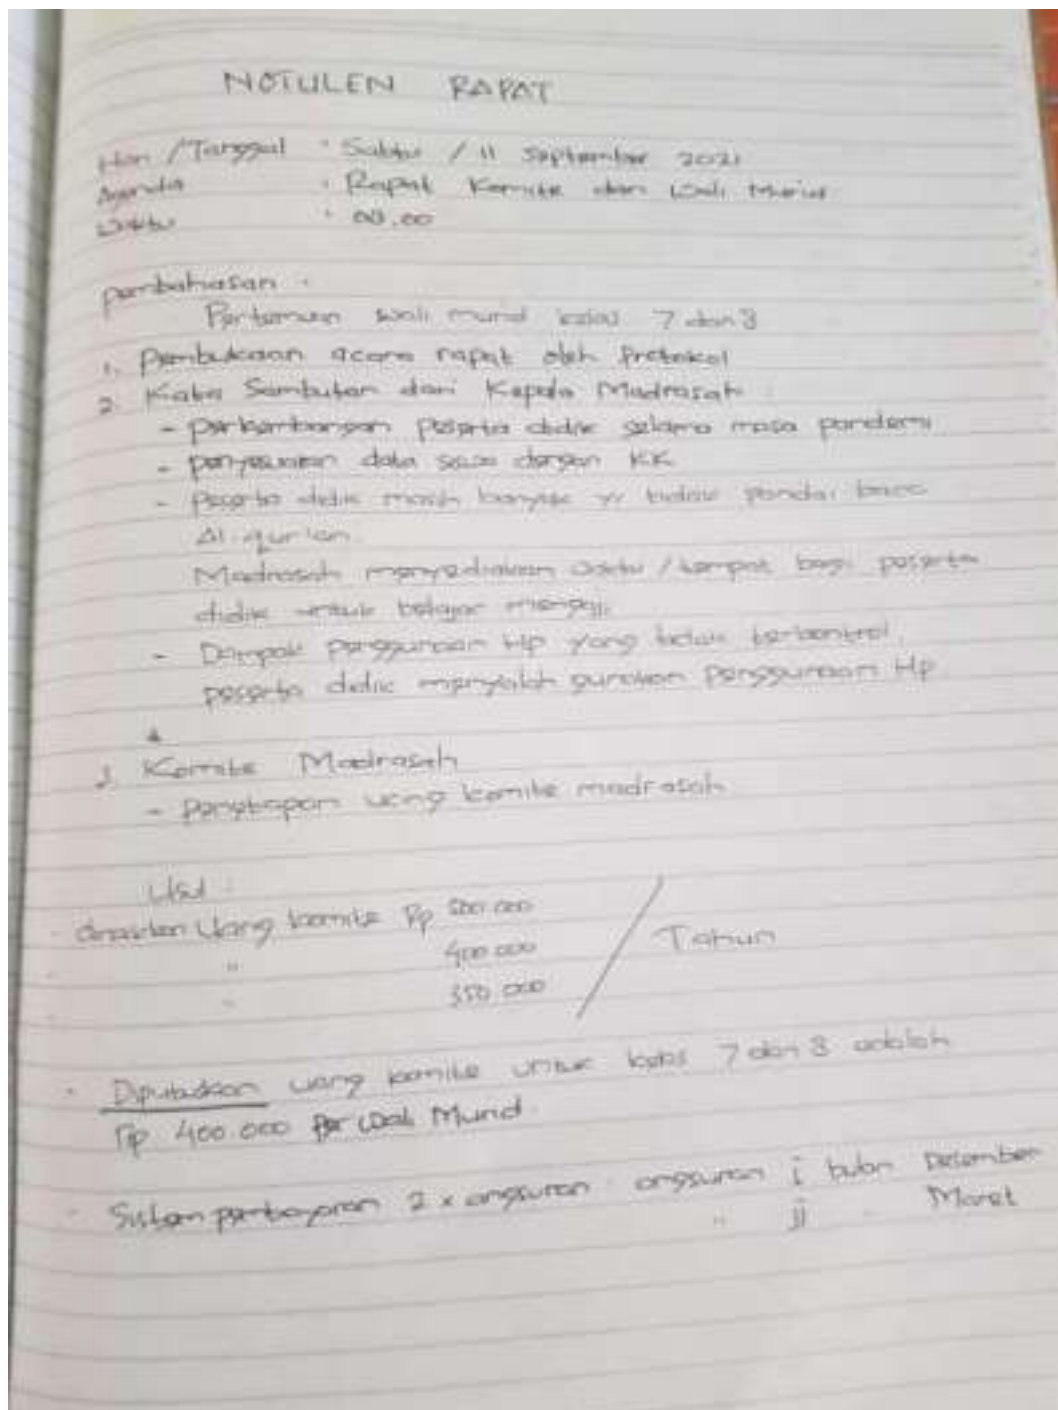 NOTULEN RAPAT
Hari / Tanggal : Sabtu / 11 September 2021
Agenda : Rapat Komite dan Wali Murid
Waktu :
pembahasan :
Pertemuan wali murid kelas 7 dan 8
1. Pembukaan acara rapat oleh Protokol
2. Kata Sambutan dari Kepala Madrasah :
- perkembangan peserta didik selama masa pandemi
- penyesuaian data siswa dengan KK
- peserta didik masih banyak yg tidak pandai baca
Al-qur'an.
Madrasah menyediakan waktu / tempat bagi peserta
didik untuk belajar mengaji.
- Dampak penggunaan Hp yang tidak terkontrol.
peserta didik menyalah gunakan penggunaan Hp.
3. Komite Madrasah
- Penetapan uang komite madrasah
Usul :
Uang komite Rp 500.000
" 400.000 / Tahun
" 350.000
- Diputuskan uang komite untuk kelas 7 dan 8 adalah
Rp 400.000 per Wali Murid.
- Sistem pembayaran 2 x angsuran : angsuran i bulan Desember
" ii " Maret